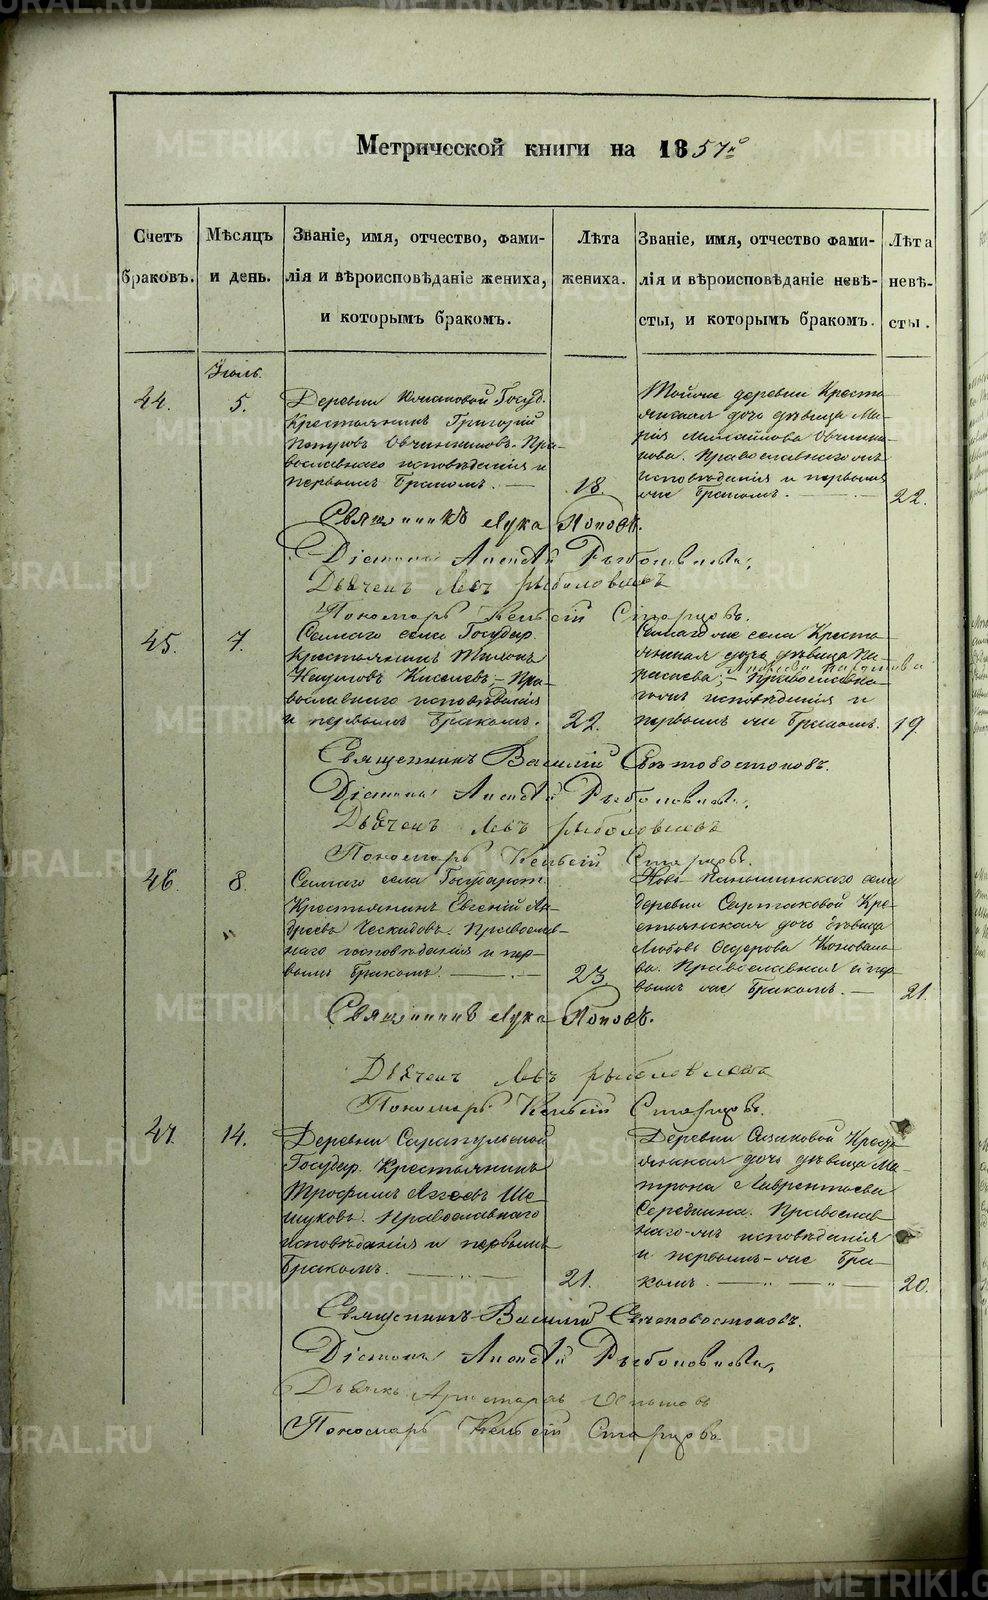 METRIKI.GASO-URAL.RU
Метрической книги на 1857й
Счетъ браковъ.
Мѣсяцъ и день.
Званіе, имя, отчество, фами-
лія и вѣроисповѣданіе жениха,
и которымъ бракомъ.
Лѣта жениха.
Званіе, имя, отчество фами-
лія и вѣроисповѣданіе невѣ-
сты, и которымъ бракомъ.
Лѣта невѣ-
сты.
Іюль.
44.
5.
Деревни Госуд.
Крестьянинъ Григорій
Овчинниковъ. Пра-
вославнаго исповѣданія и
первымъ бракомъ.
18.
Тойже деревни Кресть
янская дочь дѣвица Ма-
рія Михайлова Овчинни-
кова. Православнаго-жъ
исповѣданія и первымъ
же бракомъ.
22.
Священникъ Лука Поповъ.
Діаконъ Алексѣй Рыболовлевъ.
Дьячекъ Левъ Рыболовлевъ
Пономарь Старцовъ.
45.
7.
Самаго села Государ.
Крестьянинъ Тихонъ
Наумовъ Киселевъ, Пра-
вославнаго исповѣданія
и первымъ бракомъ.
22.
Самаго же села Кресть
янская дочь дѣвица Па-
раскева, Православна-
гожъ исповѣданія и
первымъ же бракомъ.
19.
Священникъ Василій
Діаконъ Алексѣй Рыболовлевъ.
Дьячекъ Левъ Рыболовлевъ
Пономарь Старцовъ.
46.
8.
Самаго села Государст.
Крестьянинъ Евгеній Ан-
дреевъ Ческидовъ. Православ-
наго исповѣданія и пер-
вымъ бракомъ.
23.
Ново-Паньшинскаго села
деревни Кре-
стьянская дочь дѣвица
Любовь Сидорова Коновало-
ва. Православная и пер-
вымъ же бракомъ.
21.
Священникъ Лука Поповъ.
Дьячекъ Левъ Рыболовлевъ
Пономарь Старцовъ.
47.
14.
Деревни Сарапульской
Государ. Крестьянинъ
Трофимъ Агеевъ Ше-
луковъ. Православнаго
исповѣданія и первымъ
бракомъ.
21.
Деревни Сизиковой Кресть
янская дочь дѣвица Ма-
трона Лаврентьева
Серебкина. Православ-
наго-жъ исповѣданія
и первымъ-же бра-
комъ.
20.
Священникъ Василій
Діаконъ Алексѣй Рыболовлевъ.
Дьячекъ Аристархъ
Пономарь Старцовъ